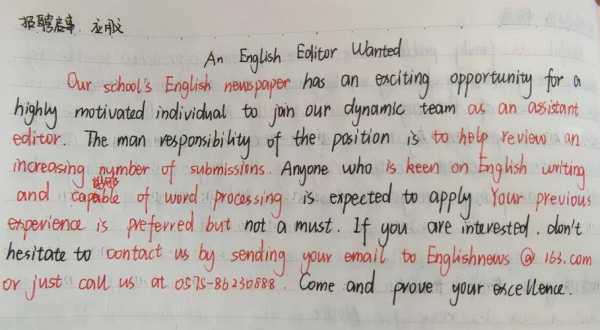 招聘启事 应用文
An English Editor Wanted
Our school's English newspaper has an exciting opportunity for a
highly motivated individual to join our dynamic team as an assistant
editor. The man responsibility of the position is to help review an
increasing number of submissions. Anyone who is keen on English writing
and capable of word processing is expected to apply Your previous
experience is preferred but not a must. If you are interested, don't
hesitate to contact us by sending your email to Englishnews @ 163.com
or just call us at 0575-86230888. Come and prove your excellence.